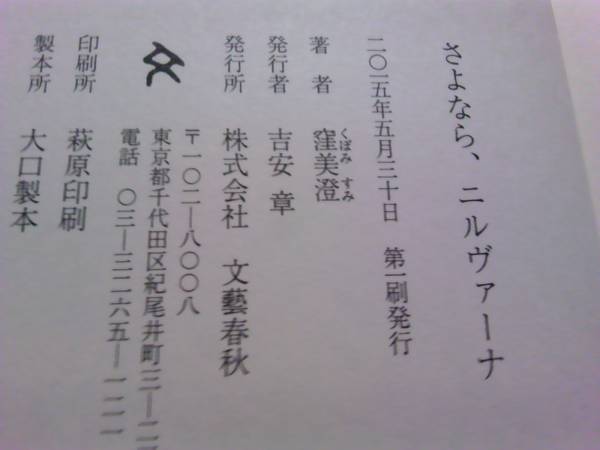 さよなら、ニルヴァーナ
二〇一五年五月三十日 第一刷発行
著者 窪美澄
くぼみ すみ
発行者 吉安章
発行所 株式会社 文藝春秋
〒一〇二―八〇〇八
東京都千代田区紀尾井町三―二
電話 〇三―三二六五―一二一一
印刷所 萩原印刷
製本所 大口製本